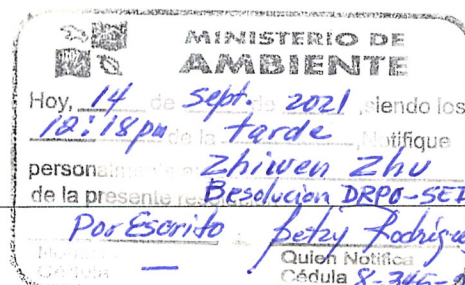 MINISTERIO DE
AMBIENTE
Hoy, 14 de Sept. de 2021, siendo los
12:18 pm de la tarde Notifique
personalmente Zhiwen Zhu
de la presente Resolucion DRPO-SEI
Por Escrito Betzy Rodrígue
Quien Notifica
Cédula Cédula 8-345-